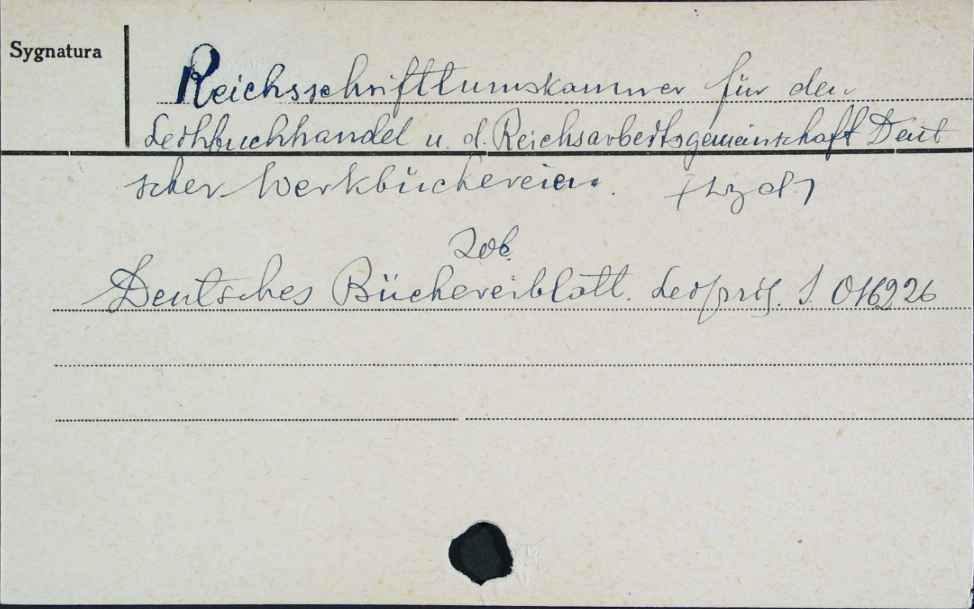 Sygnatura
Reichsschrifttumskammer für den
Leihbuchhandel u. d. Reichsarbeitsgemeinschaft Deut
scher Werkbüchereien.
Zob.
Deutsches Büchereiblatt. Leipzig. S. 016926